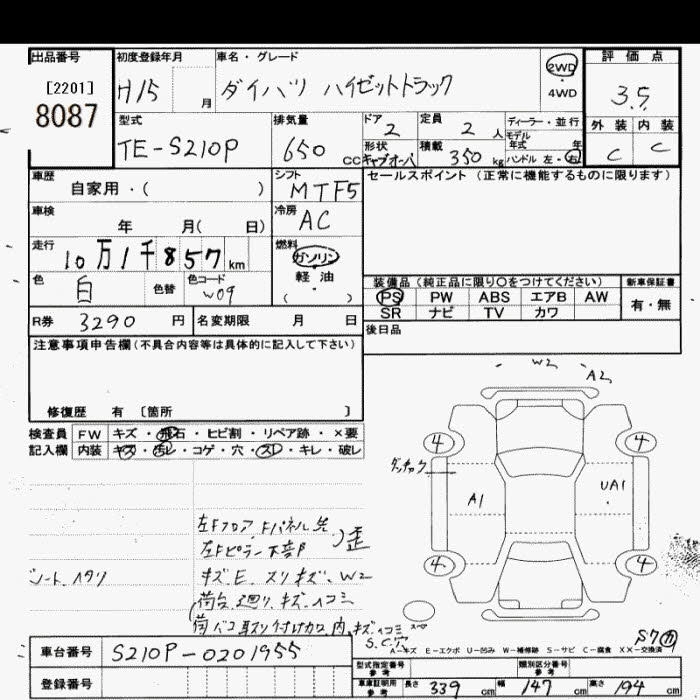 出品番号
[2201]
8087
初度登録年月
H15 月
車名・グレード
ダイハツ ハイゼットトラック
2WD
・
4WD
評価点
3.5
型式
TE-S210P
排気量
650 cc
ドア
2
定員
2 人
ディーラー・並行
モデル
年式 年
形状
キャブオーバ
積載
350 kg
ハンドル 左・右
外装 内装
C C
車歴
自家用・( )
シフト
MTF5
セールスポイント (正常に機能するものに限ります)
車検
年 月( 日)
冷房
AC
走行
10万1千857 km
燃料
ガソリン
軽油
・
( )
色
白
色替
色コード
W09
装備品 (純正品に限り○をつけてください)
PS PW ABS エアB AW
SR ナビ TV カワ
新車保証書
有・無
R券 3290 円
名変期限 月 日
後日品
注意事項申告欄 (不具合内容等は具体的に記入して下さい)
修復歴 有 [箇所 ]
検査員 FW キズ・飛石・ヒビ割・リペア跡・×要
記入欄 内装 キズ・汚レ・コゲ・穴・スレ・キレ・破レ
W2
A2
4 4
A1 UA1
4 4
左Fフロア、Fパネル先
左Fピラー下部
歪
シートヘタリ
キズ、E、スリキズ、W2
荷台廻り、キズ、ヘコミ
S.C穴
A-キズ E-エクボ U-凹み W-補修跡 S-サビ C-腐食 XX-交換済
車台番号 S210P-0201955
登録番号
型式指定番号
参考
類別区分番号
参考
車庫証明用
参考
長さ 339 cm
幅 147 cm
高さ 194 cm